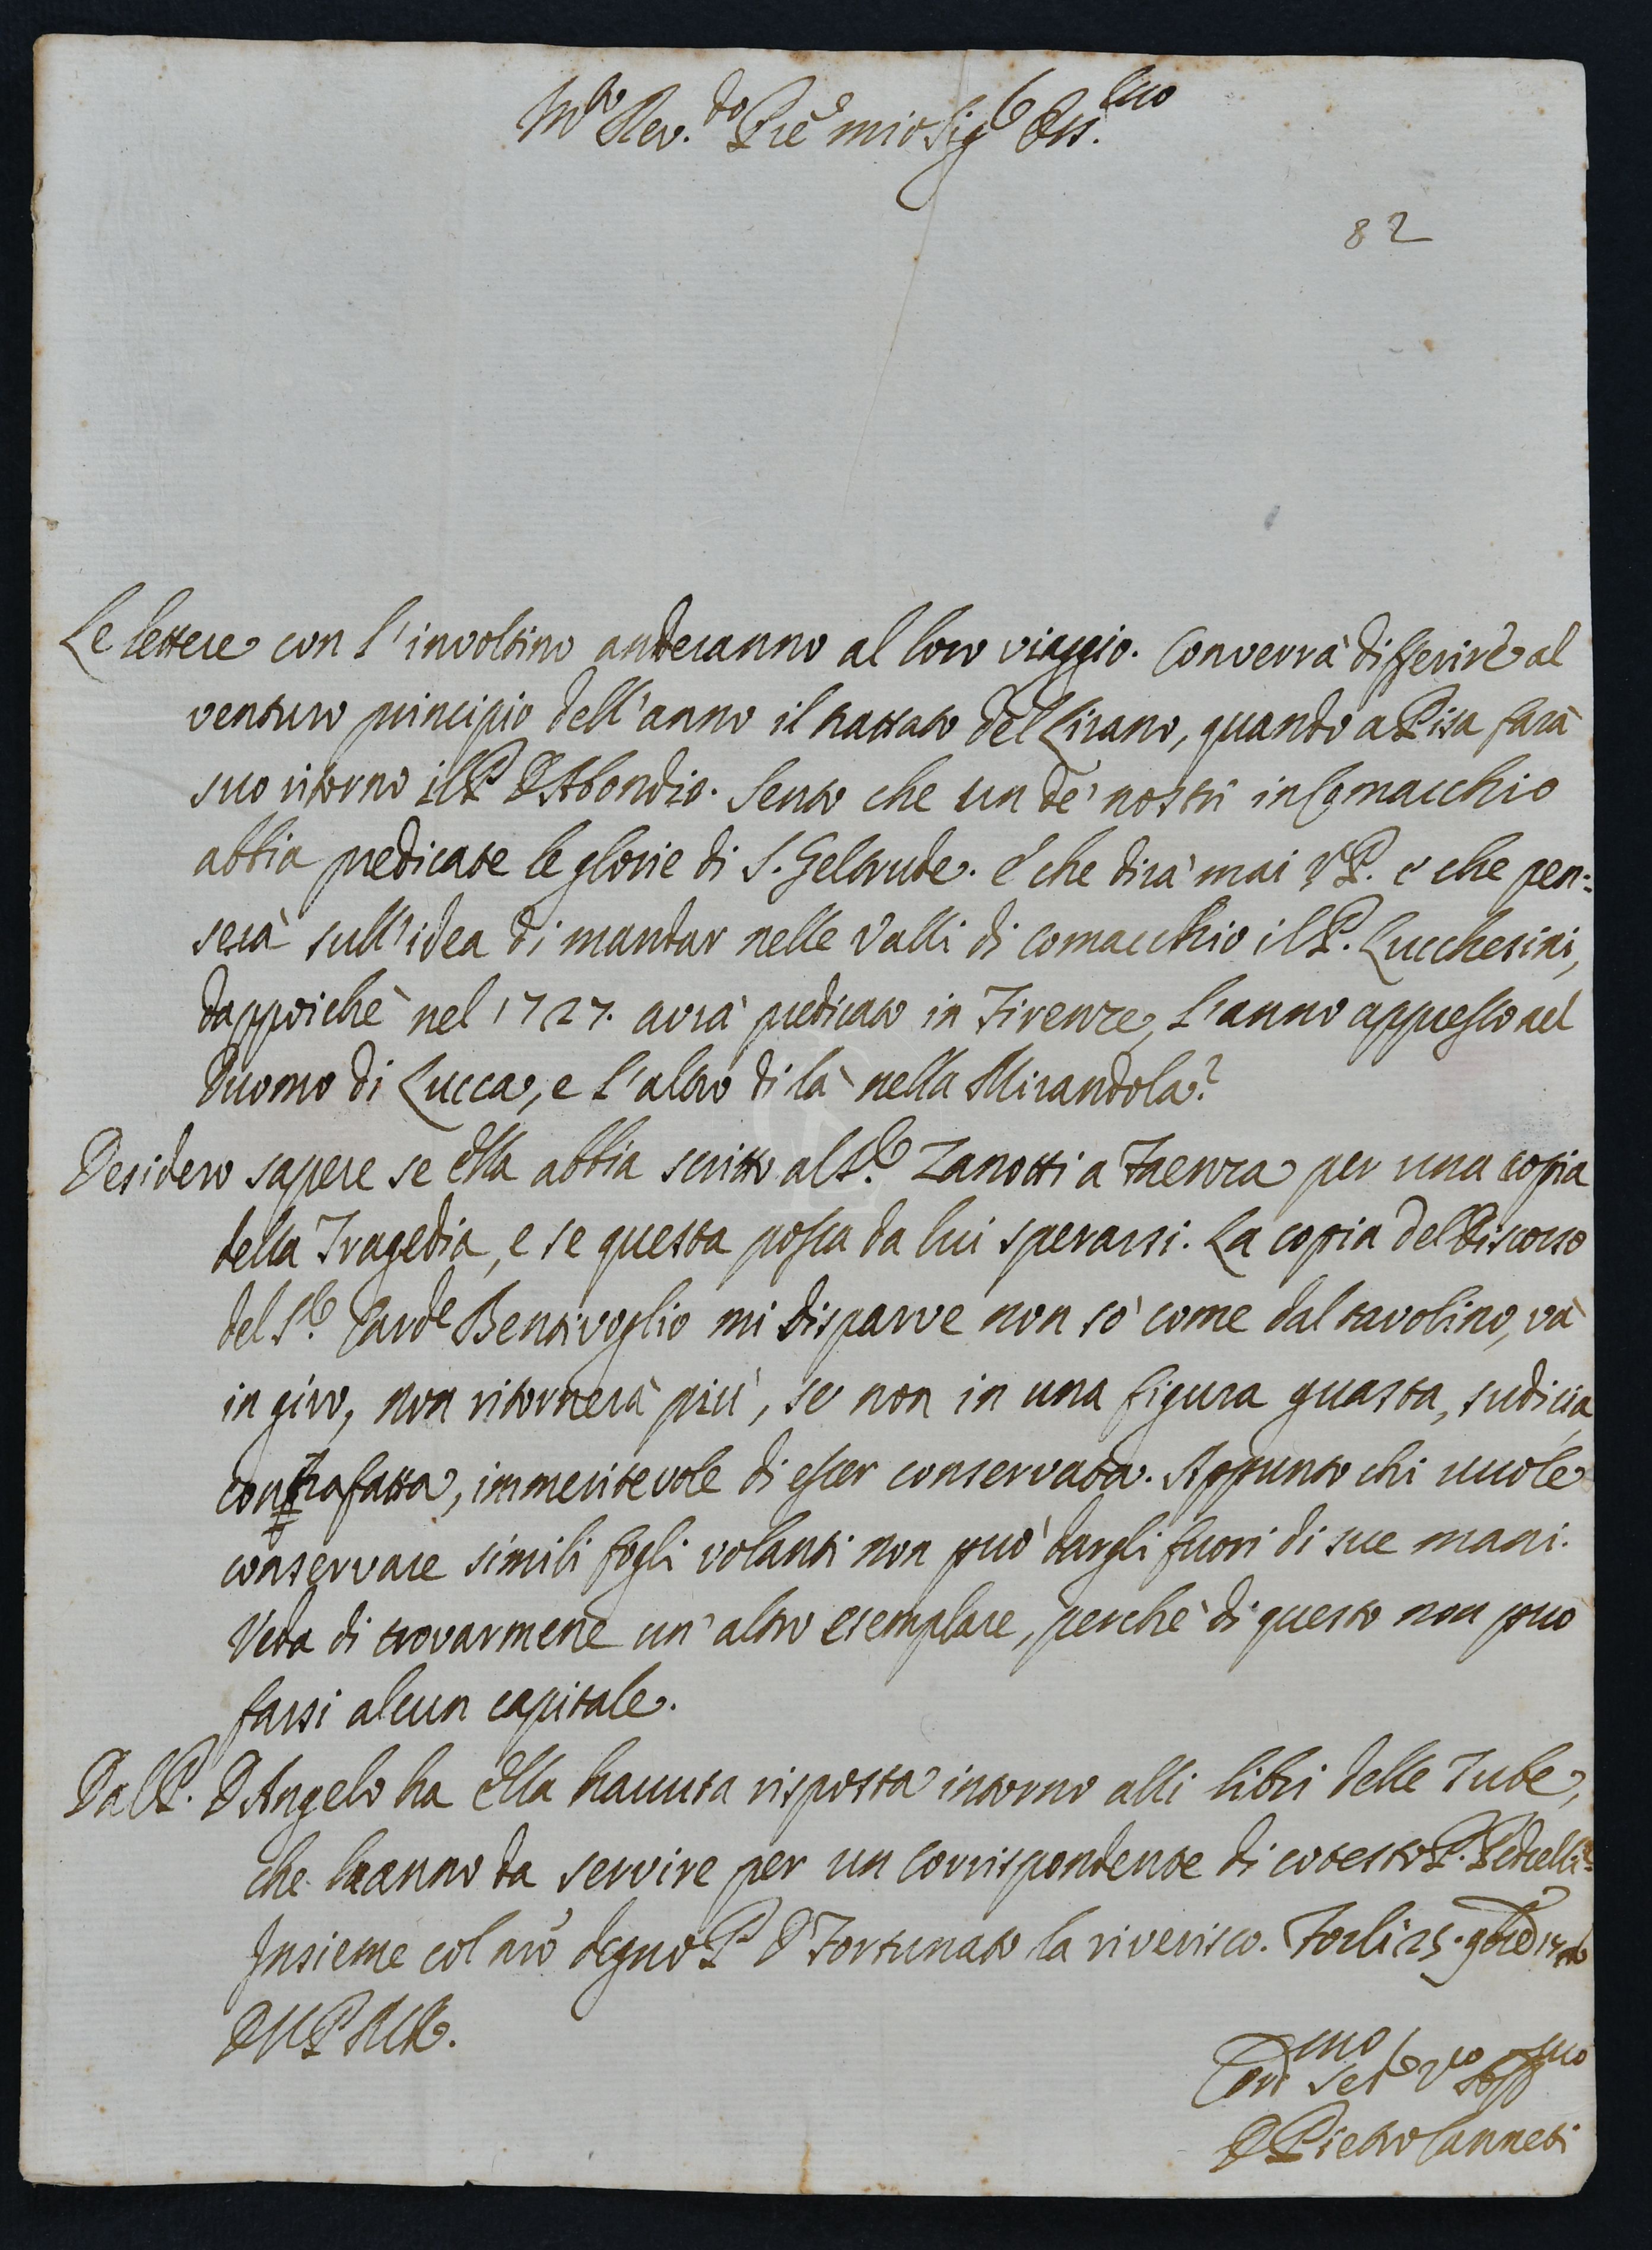 M.to Rev.do P̃re mio Sig.e Oss.mo
82
Le lettere con l'involtino anderanno al loro viaggio. Converrà differire al
venturo principio dell'anno il trattato del Lirano, quando a Pisa farà
suo ritorno il P. D. Abondio. Sento che un de' nostri in Comacchio
abbia predicate le glorie di S. Geltrude. e che dirà mai V. P. e che pen:
serà sull'idea di mandar nelle Valli di Comacchio il P. Lucchesini,
dappoichè nel 1727. avrà predicato in Firenze, l'anno appresso nel
Duomo di Lucca, e l'altro di là nella Mirandola?
Desidero sapere se Ella abbia scritto al S.e Zanotti a Faenza per una copia
della Tragedia, e se questa possa da lui sperarsi. La copia del Discorso
del S.e Card.e Bentivoglio mi disparve non sò come dal tavolino, và
in giro, non ritornerà più, se non in una figura guasta, sudicia,
contrafatta, immeritevole di esser conservata. Appunto chi vuole
conservare simili fogli volanti non può dargli fuori di sue mani.
Veda di trovarmene un'altro esemplare, perchè di questo non può
farsi alcun capitale.
Dal P. D. Angelo ha Ella havuta risposta intorno alli libri delle Tube,
che hanno da servire per un Corrispondente di cotesto P. Petrelli?
Insieme col nr̃o degno P. D. Fortunato la riverisco. Forlì 25. 9bre
D V P M R.
Dev.mo Se.e V.o Obb.mo
D. Pietro Canneti